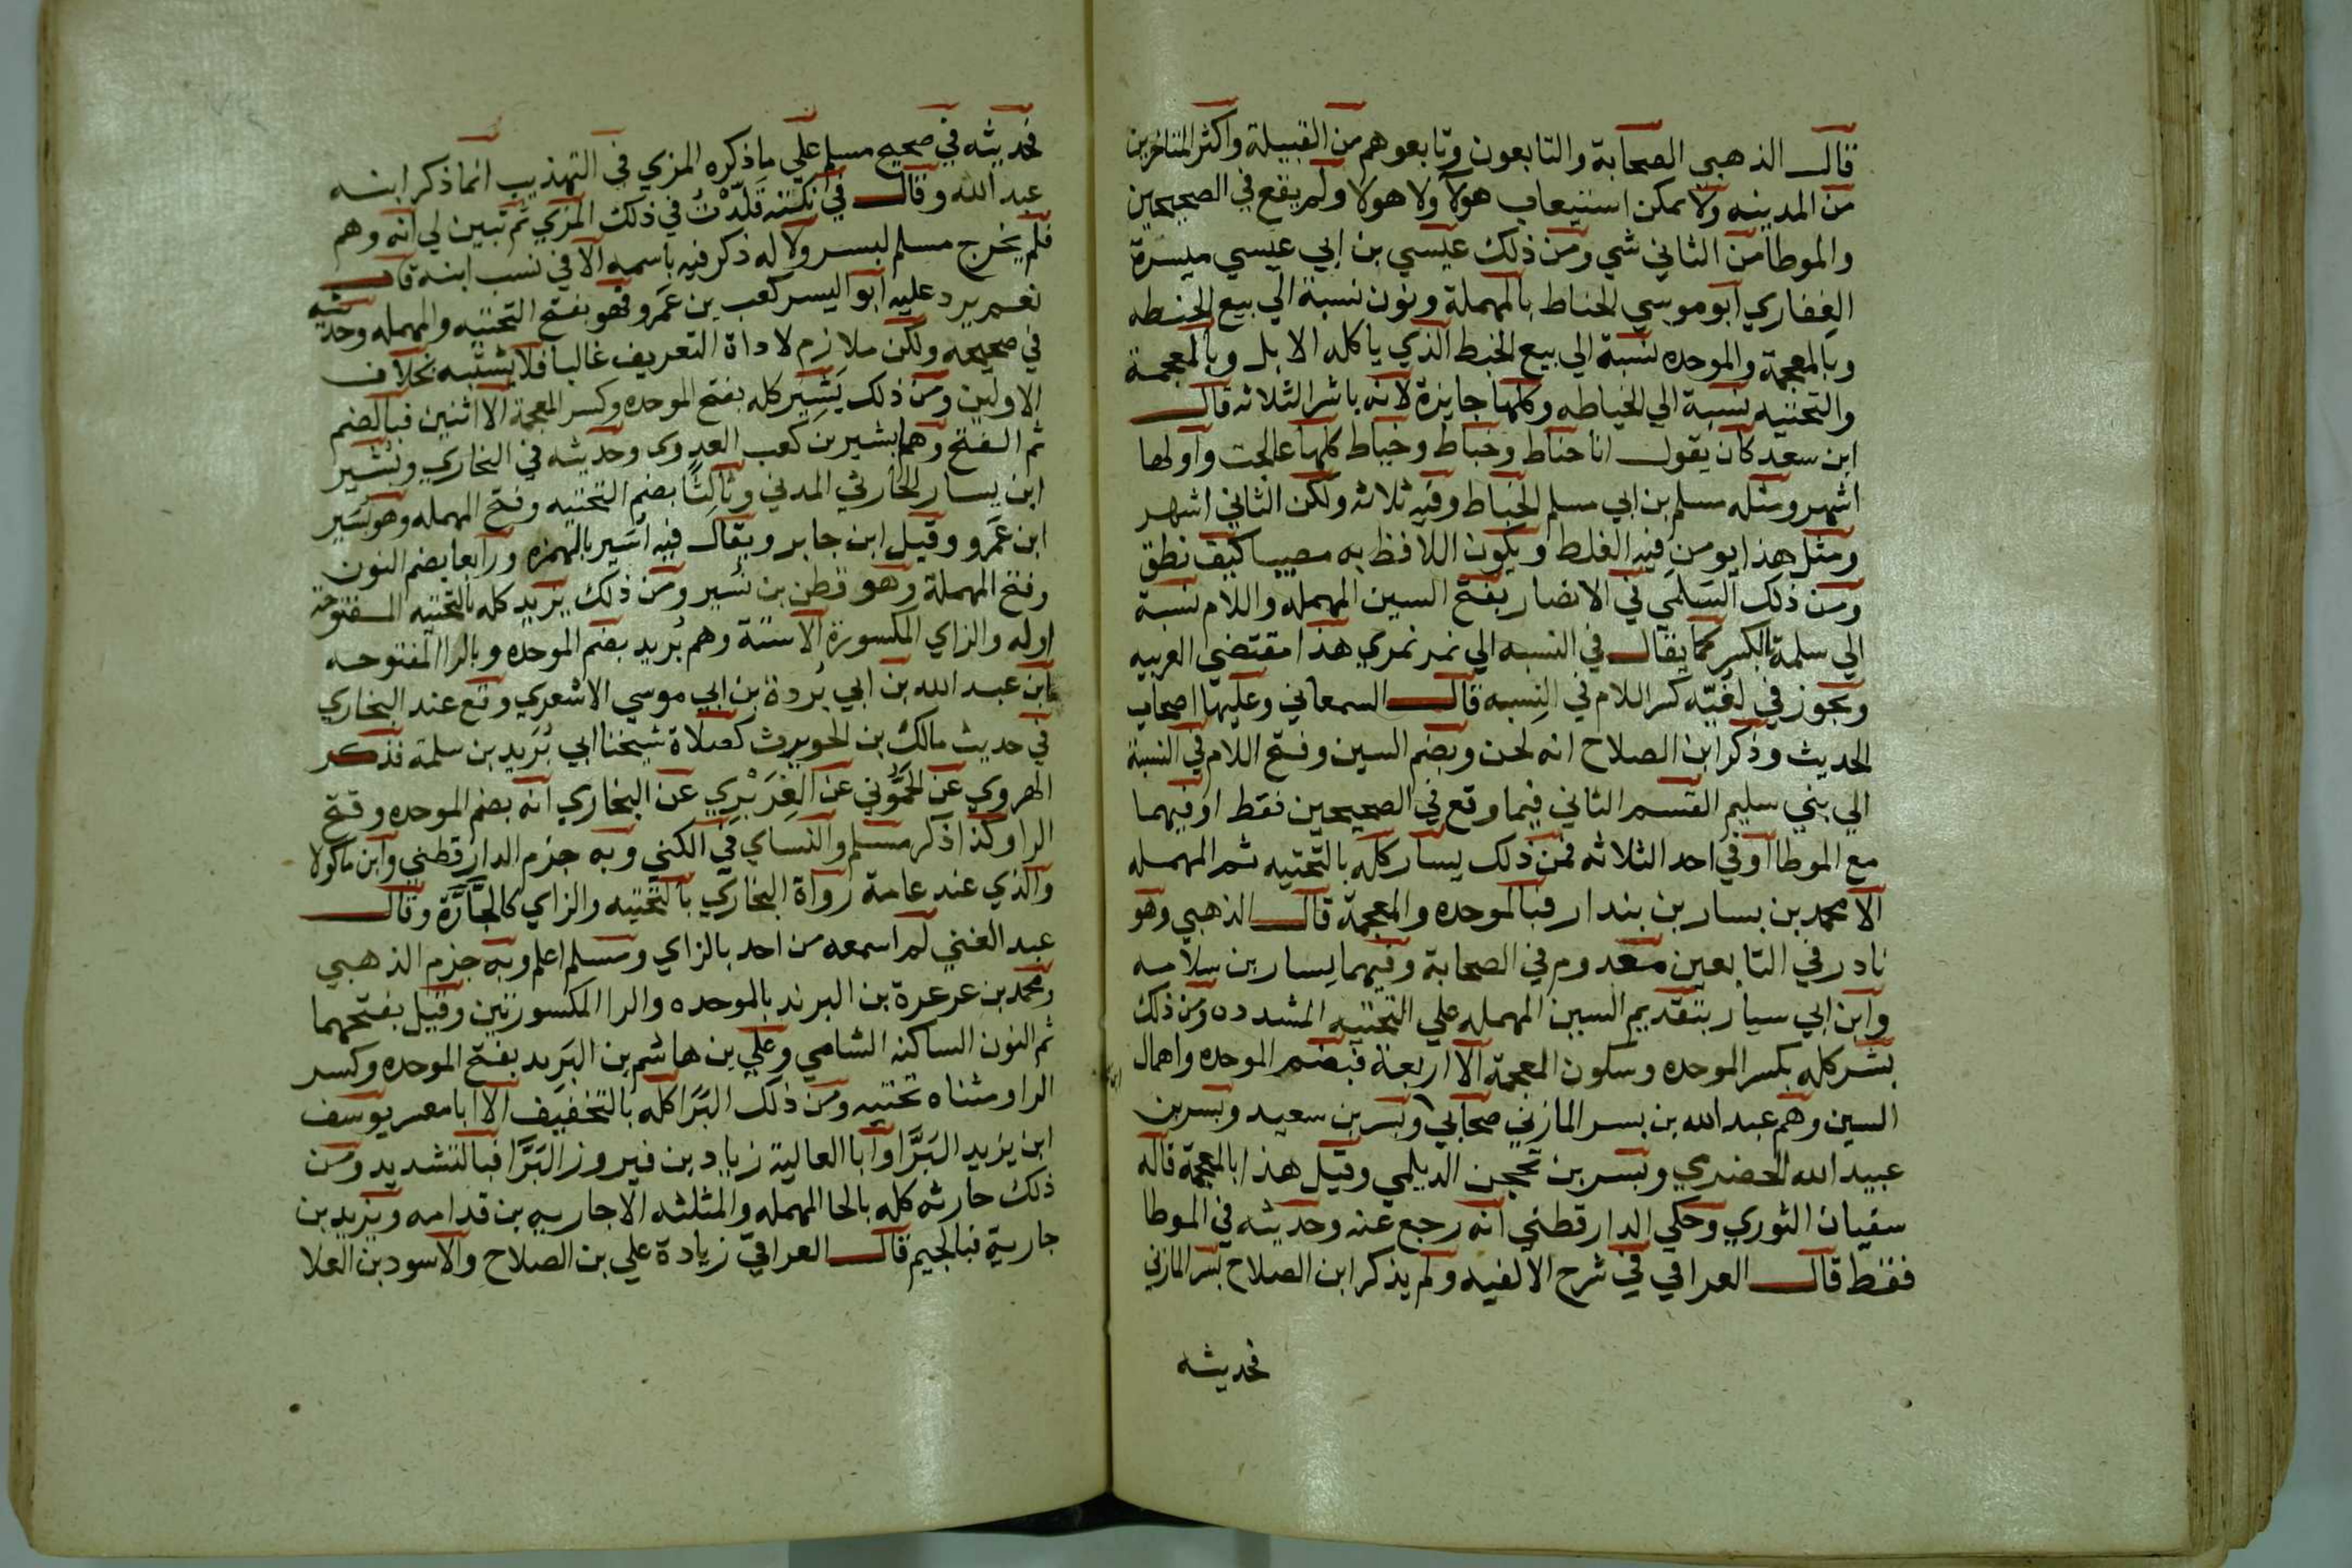 قال الذهبي الصحابة والتابعون وتابعوهم من القبيلة واكثر المتاخرين
من المدينه ولا يمكن استيعاب هولآ ولا هولا ولم يقع في الصحيحين
والموطا من الثاني شي ومن ذلك عيسي بن ابي عيسي ميسرة
الغفاري ابو موسي الحناط بالمهملة ونون نسبة الي بيع الحنطه
وبالمعجمة والموحده نسبة الي بيع الخبط الذي ياكله الابل وبالمعجمة
والتحتيه نسبة الي الخياطه وكلها جايزة لانه باشر الثلاثه قال
ابن سعد كان يقول انا حناط وخباط وخياط كلها عالجت واولها
اشهر ومثله مسلم بن ابي مسلم الخباط وفيه ثلاثه ولكن الثاني اشهر
ومثل هذا يومن فيه الغلط ويكون اللافظ به مصيبا كيف نطق
ومن ذلك السلمي في الانصار بفتح السين المهمله واللام نسبة
الي سلمة بالكسر كما يقال في النسبه الي نمر نمري هذا مقتضي العربيه
ويجوز في لغيّه كسر اللام في النسبه قال السمعاني وعليها اصحاب
الحديث وذكر ابن الصلاح انه لحن وبضم السين وفتح اللام في النسبة
الي بني سليم القسم الثاني فيما وقع في الصحيحين فقط او فيهما
مع الموطا او في احد الثلاثه فمن ذلك يسار كله بالتحتيه ثم المهمله
الا محمد بن بسار بن بندار فبالموحده والمعجمة قال الذهبي وهو
نادر في التابعين معدوم في الصحابة وفيهما يسار بن سلامه
وابن ابي سيار بتقديم السين المهمله علي التحتيه المشدده ومن ذلك
بشر كله بكسر الموحده وسكون المعجمة الا اربعة فبضم الموحده واهمال
السين وهم عبد الله بن بسر المازني صحابي وبسر بن سعيد وبسر بن
عبيد الله الحضرمي وبسر بن محجن الديلمي وقيل هذا بالمعجمة قاله
سفيان الثوري وحكي الدارقطني انه رجع عنه وحديثه في الموطا
فقط قال العراقي في شرح الالفيه ولم يذكر ابن الصلاح بسر المازني
فحديثه
فحديثه في صحيح مسلم علي ما ذكره المزي في التهذيب انما ذكر ابنه
عبد الله وقال في نكته قلّدْتُ في ذلك المزي ثم تبين لي انه وهم
فلم يخرج مسلم لبسر ولا له ذكر فيه باسمه الا في نسب ابنه قال
نعم يرد عليه ابو اليسر كعب بن عمرو فهو بفتح التحتيه والمهمله وحديثه
في صحيحه ولكن ملازم لاداة التعريف غالبا فلا يشتبه بخلاف
الاولين ومن ذلك بَشِير كله بفتح الموحده وكسر المعجمة الا اثنين فبالضم
ثم الفتح وهما بشير بن كعب العدوى وحديثه في البخاري وبُشير
ابن يسار الحارثي المدني وثالثًا بضم التحتيه وفتح المهمله وهو يُسَير
ابن عمَرو وقيل ابن جابر ويقال فيه اُسَير بالهمزه ورابعا بضم النون
وفتح المهملة وهو قطن بن نُسير ومن ذلك يزيد كله بالتحتيه المفتوحة
اوله والزاي المكسورة الا ستة وهم بُريد بضم الموحده وبالرا المفتوحه
ابن عبد الله بن ابي بُردة بن ابي موسي الاشعري وقع عند البخاري
في حديث مالك بن الحويرث كصلاة شيخنا ابي بُرَيد بن سلمة فذكر
الهروي عن الحَمُّوني عن الفِرَبْرِي عن البخاري انه بضم الموحده وفتح
الرا وكذا ذكر مسلم والنساي في الكني وبه جزم الدارقطني وابن ماكولا
والذي عند عامة رواة البخاري بالتحتيه والزاي كالجَادَّة وقال
عبد الغني لم اسمعه من احد بالزاي ومسلم اعلم وبه جزم الذهبي
ومحمد بن عرعرة بن البرند بالموحده والرا المكسورتين وقيل بفتحهما
ثم النون الساكنه الشامي وعلي بن هاشم بن البَريد بفتح الموحده وكسر
الرا ومثناه تحتيه ومن ذلك البَرَا كله بالتخفيف الا ابا معسر يوسف
ابن يزيد البَرَّا وابا العالية زياد بن فيروز البَرَّا فبالتشديد ومن
ذلك حارثه كله بالحا المهمله والمثلثه الا جاريه بن قدامه ويزيد بن
جارية فبالجيم قال العراقي زيادة علي بن الصلاح والاسود بن العلا